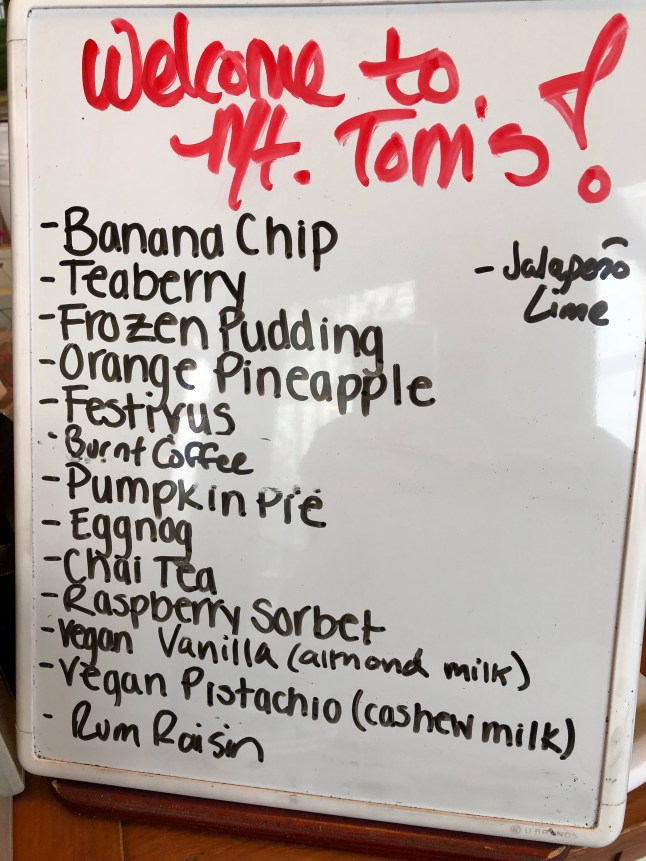 Welcome to
Mt. Tom's!
- Banana Chip
- Teaberry
- Frozen Pudding
- Orange Pineapple
- Festivus
- Burnt Coffee
- Pumpkin Pie
- Eggnog
- Chai Tea
- Raspberry Sorbet
- Vegan Vanilla (almond milk)
- Vegan Pistachio (cashew milk)
- Rum Raisin
- Jalapeño
Lime
U BRANDS